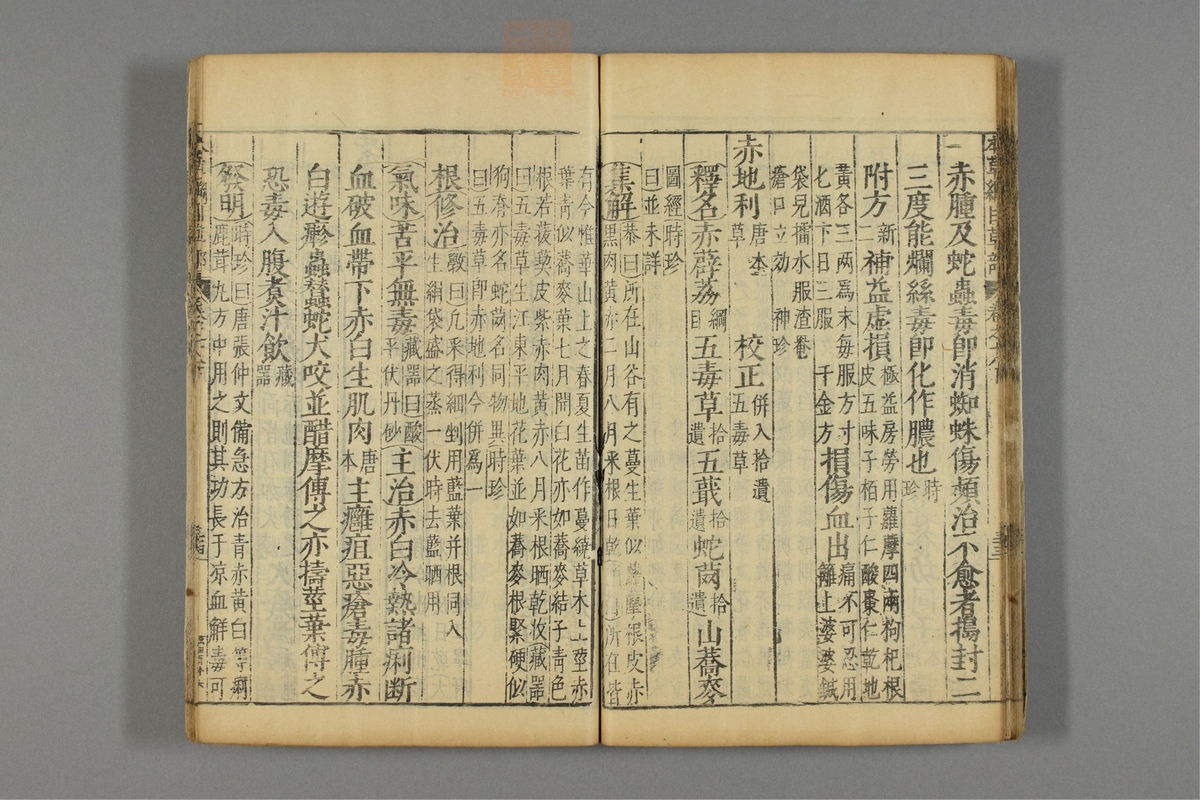 赤腫及蛇蟲毒卽消蜘蛛傷頻治不愈者擣封二
三度能爛絲毒卽化作膿也時珍
附方新二補益虛損極益房勞用蘿藦四兩枸杞根
皮五味子栢子仁酸棗仁乾地
黃各三兩爲末每服方寸
匕酒下日三服千金方損傷血出痛不可忍用
籬上婆婆鍼
袋兒擂水服渣罨
瘡口立効神珍
赤地利唐本草校正併入拾遺
五毒草
釋名赤薜荔綱目五毒草拾遺五蕺拾遺蛇䓔拾遺山蕎麥
圖經時珍
曰並未詳
集解恭曰所在山谷有之蔓生葉似蘿摩根皮赤
黑肉黃赤二月八月采根日乾所在皆
有今惟華山上之春夏生苗作蔓繞草木上莖赤
葉青似蕎麥葉七月開白花亦如蕎麥結子青色
根若菝葜皮紫赤肉黃赤八月采根晒乾收藏器
曰五毒草生江東平地花葉並如蕎麥根緊硬似
狗脊亦名蛇䓔名同物異時珍
曰五毒草卽赤地利今併爲一
根修治斆曰凡采得細剉用藍葉并根同入
生絹袋盛之蒸一伏時去藍晒用
氣味苦平無毒藏器曰酸
平伏丹砂主治赤白冷熱諸痢斷
血破血帶下赤白生肌肉唐本主癰疽惡瘡毒腫赤
白遊𤺋蟲蠶蛇犬咬並醋摩傅之亦擣莖葉傅之
恐毒入腹煑汁飲藏器
發明時珍曰唐張仲文備急方治青赤黃白等痢
鹿茸丸方中用之則其功長于凉血解毒可